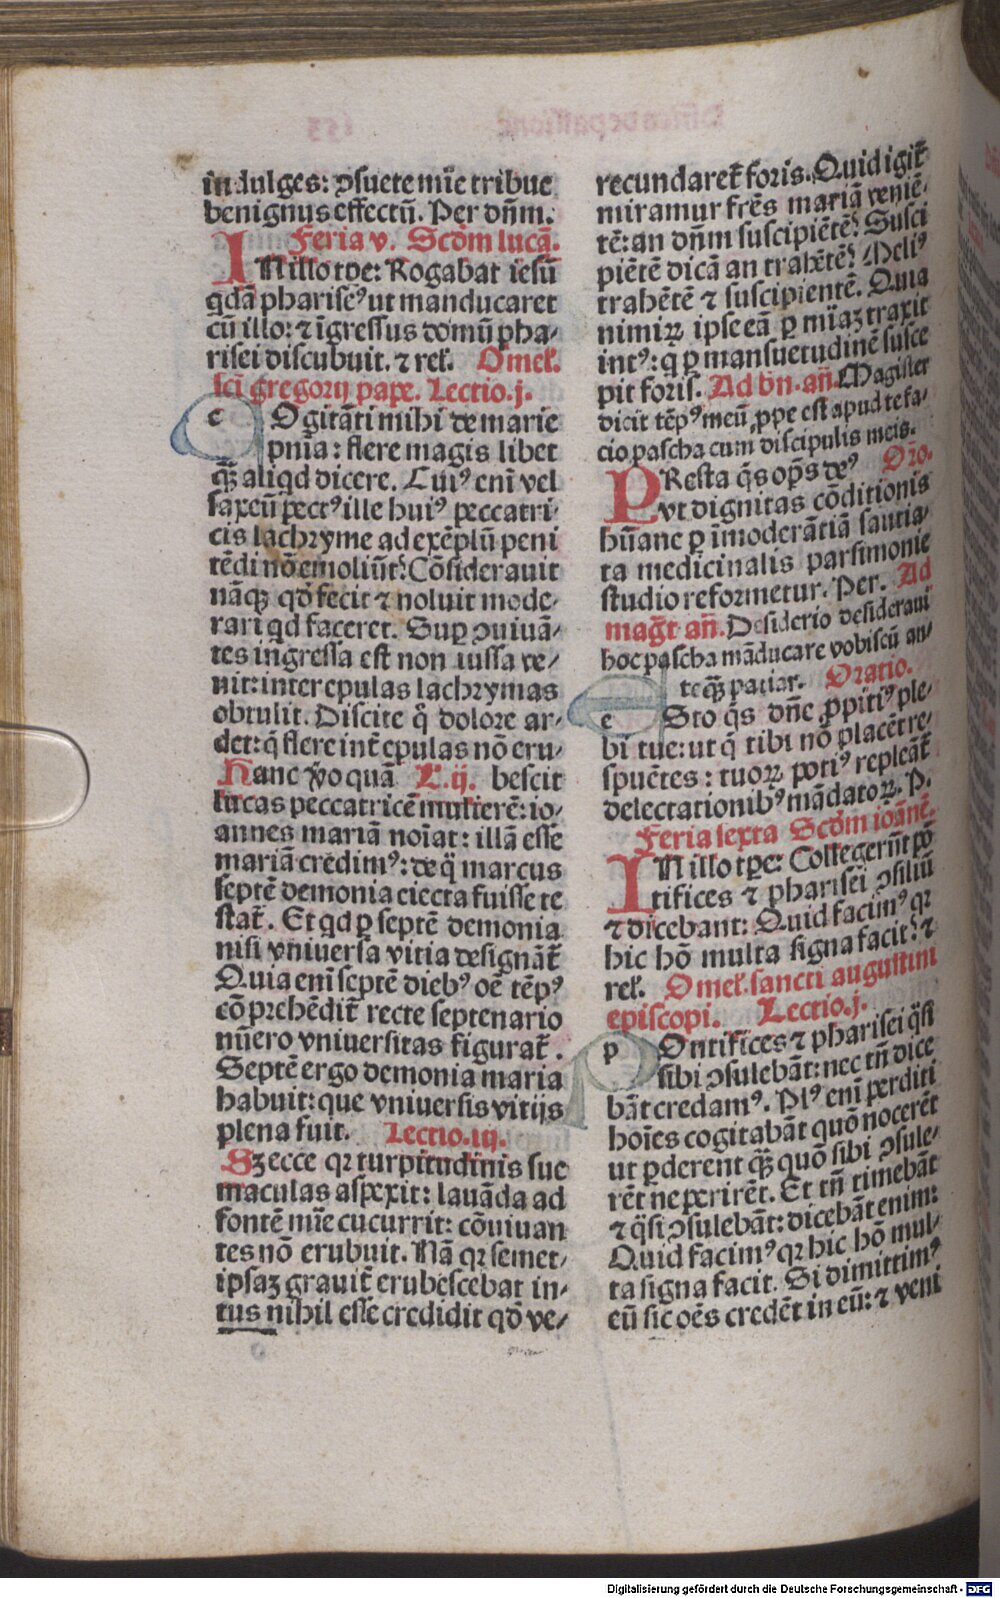 indulges: ꝯsuete mīe tribue
benignus effectū. Per dn̄m.
Feria v. Scd̄m lucā.
IN illo tp̄e: Rogabat iesū
qdā phariseꝰ ut manducaret
cū illo: ⁊ īgressus domū pha-
risei discubuit. ⁊ rel̄. Omel̄.
sc̄i gregorij pape. Lectio.j.
COgitāti mihi de marie
pn̄ia: flere magis libet
qꝫ̄ aliqd dicere. Cuiꝰ eni vel
saxeū pectꝰ ille huiꝰ peccatri-
cis lachryme ad exēplū peni
tēdi nō emoliūt? Cōsiderauit
nāqꝫ qd̄ fecit ⁊ noluit mode-
rari qd faceret. Suꝑ ꝯuiuā-
tes ingressa est non iussa ve-
nit: inter epulas lachrymas
obtulit. Discite q̄ dolore ar-
det: q̄ flere int̄ epulas nō eru-
Hanc v̄o quā L.ij. bescit
lucas peccatricē mulierē: io-
annes mariā noīat: illā esse
mariā credimꝰ: de q̄ marcus
septē demonia eiecta fuisse te
stat̄. Et qd ꝑ septē demonia
nisi vniuersa vitia designāt̄
Quia eni septē diebꝰ oē tēpꝰ
cōprehēdit̄ recte septenario
nūero vniuersitas figurat̄.
Septē ergo demonia maria
habuit: que vniuersis vitijs
plena fuit. Lectio.iij.
Sꝫ ecce qꝛ turpitudinis sue
maculas aspexit: lauāda ad
fontē mīe cucurrit: cōuiuan
tes nō erubuit. Nā qꝛ semet-
ipsaꝫ grauit̄ erubescebat in-
tus nihil esse credidit qd̄ ve-
recundaret̄ foris. Quid igit̄
miramur fr̄es mariā veniē-
tē: an dn̄m suscipiētē? Susci
piētē dicā an trahētē? Meliꝰ
trahētē ⁊ suscipientē. Quia
nimiꝝ ipse eā ꝑ mīaꝫ traxit
intꝰ: q ꝑ mansuetudinē susce
pit foris. Ad bn̄. an̄. Magister
dicit tēpꝰ meū ꝓpe est apud te fa-
cio pascha cum discipulis meis.
PResta q̄s op̄s deꝰ Oro.
vt dignitas cōditionis
hūane ꝑ imoderātiā saucia-
ta medicinalis parsimonie
studio reformetur. Per. Ad
maḡt an̄. Desiderio desideraui
hoc pascha māducare vobiscū an-
teqꝫ̄ patiar. Oratio.
ESto q̄s dn̄e ꝓpitiꝰ ple-
bi tue: ut q̄ tibi nō placēt re-
spuētes: tuoꝝ potiꝰ repleāt̄
delectationibꝰ mādatoꝝ. P.
Feria sexta Scd̄m ioānē.
IN illo tꝑe: Collegerūt pō
tifices ⁊ pharisei ꝯsiliū
⁊ dicebant: Quid facimꝰ qꝛ
hic hō multa signa facit? ⁊
rel̄. Omel̄. sancti augustini
episcopi. Lectio.j.
POntifices ⁊ pharisei q̄si
sibi ꝯsulebāt: nec tn̄ dice
bāt credamꝰ. Plꝰ eni perditi
hoīes cogitabāt quō nocerēt
ut ꝑderent qꝫ̄ quō sibi ꝯsule-
rēt ne perirēt. Et tn̄ timebāt
⁊ q̄si ꝯsulebāt: dicebāt enim:
Quid facimꝰ qꝛ hic hō mul-
ta signa facit. Si dimittimꝰ
eū sic oēs credēt in eū: ⁊ veni
Digitalisierung gefördert durch die Deutsche Forschungsgemeinschaft - DFG